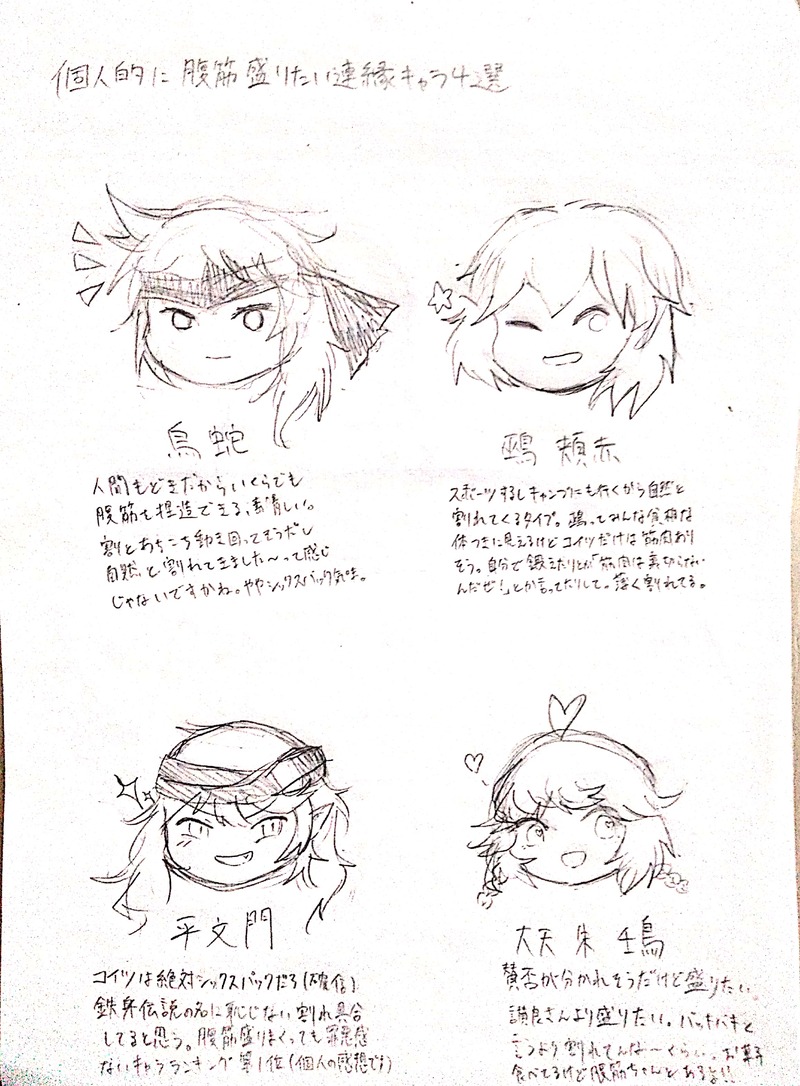 個人的に腹筋盛りたい連縁キャラ4選
烏蛇
人間もどきだからいくらでも
腹筋も捏造できる、素晴しい。
割とあちこち動き回ってそうだし
自然と割れてきました〜って感じ
じゃないですかね。ややシックスパック気味。
鵐 頬赤
スポーツするしキャンプにも行くから自然と
割れてくるタイプ。鵐ってみんな貧相な
体つきに見えるけどコイツだけは筋肉あり
そう。自分で鍛えたりとか「筋肉は裏切らない
んだぜ!」とか言ってたりして。薄く割れてる。
平文門
コイツは絶対シックスパックだろ(確信)
鉄身伝説の名に恥じない割れ具合
してると思う。腹筋盛りまくっても罪悪感
ないキャラランキング第1位(個人の感想です)
大天 朱 壬鳥
賛否が分かれそうだけど盛りたい。
讃良さんより盛りたい。バッキバキと
言うより割れてんな〜くらい。お菓子
食べてるけど腹筋ちゃんとあるよ!!